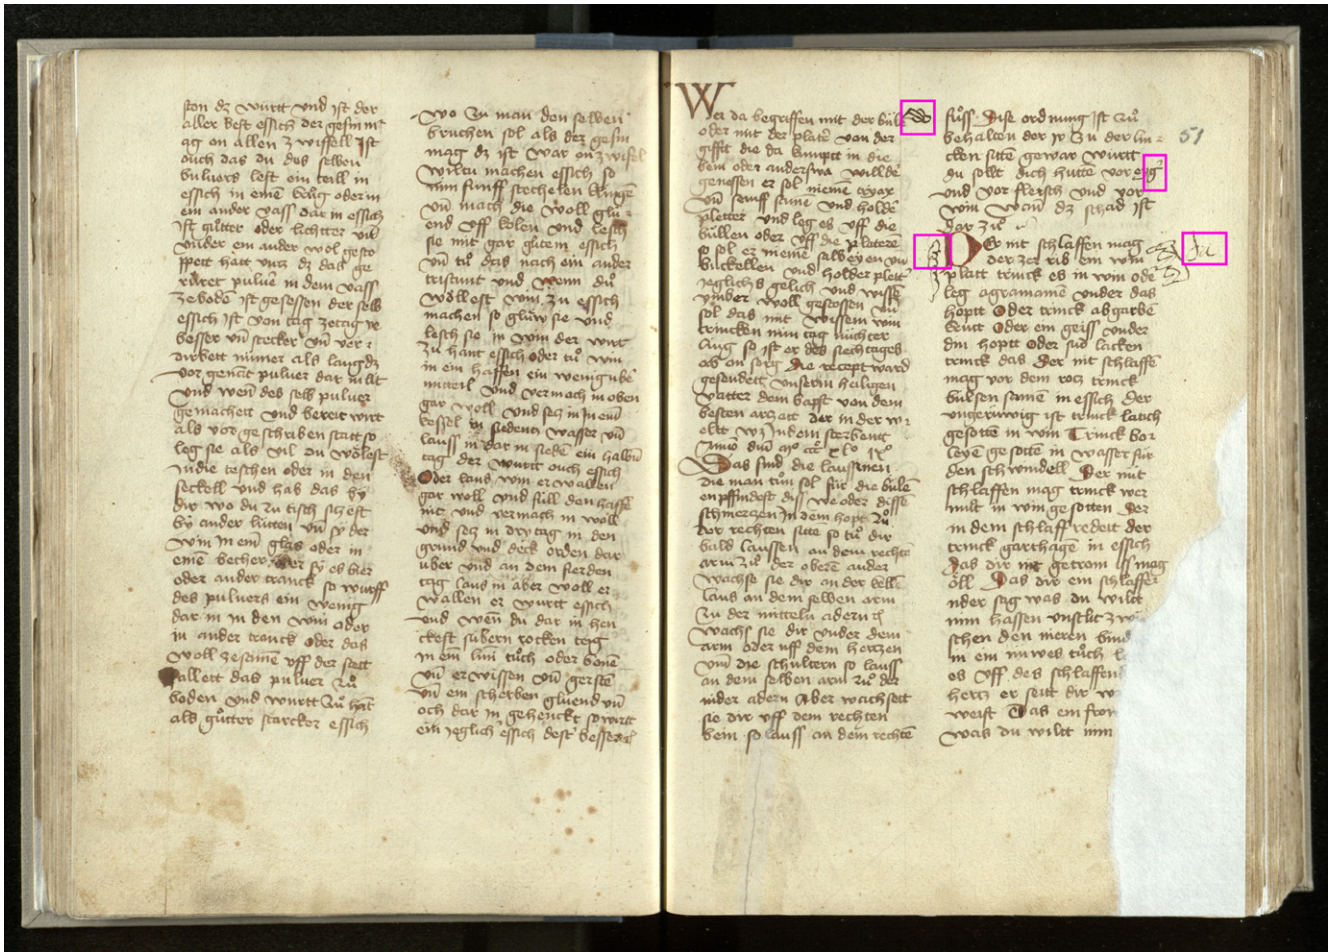 ston dz wurtt vnd ist der
aller best essich der gesin m
ag an allen zwiffell Ist
ouch das du des selben
buluers lest ein teill in
essich in einē krůg oder in
ein ander vass dar in essich
ist gůtter oder lichtter vn̄
vnder ein ander wol gesto
pett hatt vntz dz das ge
puluer in dem vass
ze bodē ist gesessen der selb
essich ist von tag ze tag ye
besser vn̄ stercker vn̄ ver
dirbett nimer als lang dz
vor genāt puluer dar in lit
vnd wen̄ des selb puluer
gemachett vnd bereit wirt
als vor geschriben statt so
leg sie als vil du wōlest
in die teschen oder in den
seckell vnd hab das by
dir wo du zu tisch sitzest
by ander lütten vn̄ sy der
win in eim glas oder in
einē becher oder sy es bier
oder ander tranck so wurff
des puluers ein wenig
dar in in den win oder
in ander tranck oder das
woll zesamē vff der stett
vallett das puluer zů
boden vnd wurtt zů hāt
als gůtter starcker essich
wo zu man den selben
bruchen sol als der gesin
mag dz ist war on zwifel
wiltu machen essich so
nim funff stechelen klingē
vn̄ mach die woll glu
end vff kolen vnd lesch
sie mit gar gůtem essich
vn̄ tů das nach ein ander
vnd wenn du
wōllest win zu essich
machen so glüw sie vnd
lesch sie in win der wirt
zu hant essich oder tů win
in ein haffen ein wenig ubē
mitteil vnd vermach in oben
gar woll vnd setz in in eim
kessel in siedent wasser vn̄
lauss in dar in siedē ein halbn̄
tag der wurtt ouch essich
Oder laus win erwallen
gar woll vnd füll den haffē
nit vnd vermach in woll
vnd setz in dry tag in den
grund vnd deck erden dar
über vnd an dem fierden
tag laus in aber woll er
wallen er wurtt essich
vnd wen̄ du dar in hen
ckest sübern rocken teig
in eim lini tůch oder bonē
vn̄ erwissen vn̄ gerstē
vn̄ ein scherben glüend vn̄
och dar in gehenckt so wirtt
ein jeglich essich dest besser
Wer da begriffen mit der bülē
oder mit der platē von der
gifftt die da kumptt in die
bein oder anderswa willdē
genessen er sol niemē tryax
vn̄ senff samē vnd holdē
pletter vnd leg es vff die
büllen oder vff die platerē
so sol er niemē salbeyen vn̄
bruckellen vnd holder plett
jeglichs gelich vnd
vnder woll gestossen vn̄
sol das mit wissem win
trincken nun tag nüchter
ling so ist er des siechtages
ab an sorg die recept ward
gesendett vnserm heiligen
vatter dem bapst von dem
besten artzatt der in der w
eltt wz in dem sterbentt
Anno dn̄i mº ccc xlº ixº
Das sind die laussinen
die man tůn sol für die bülē
enpffindest diss we oder dissē
schmertzen in dem hopt zů
der rechten sitte so tů dir
bald laussen an dem rechtē
arm zů der oberē ader
wachse sie dir an der kellē
laus an dem selben arm
zu der mitteln adern
wachs sie dir vnder dem
arm oder vff dem hertzen
vm̄ die schultern so lauss
an dem selben arm zů der
nider adern Aber wachsett
sie dir vff dem rechten
bein so lauss an dem rechten
füss Dise ordnung ist zů
behalten der jr zu der lin
cken sitē gewar wurtt
du sollt dich hütten vor eyg
vnd vor fleisch vnd vor
win wan̄ dz schad ist
dar zů
51
Der nit schlaffen mag
der zer rib ein win
Ja
platt trinck es in win oder
leg agramanē vnder das
hoptt Oder trinck abgarbē
krut Oder ein geiss vnder
din hoptt oder süd lacken
trinck das Der nit schlaffē
mag vor dem rotz trinck
bülsen samē in essich der
vngerüwig ist trinck latich
gesotten in win Trinck bor
leye gesottē in wasser für
den schwindell Der nitt
schlaffen mag trinck wer
mütt in win gesotten Der
in dem schlaff redett der
trinck garthagē in essich
Das dir nit getrom iss mag
öll Das dir ein schlaffē
nder sag was du wilt
nim hassen vnslit zwü
schen den nieren bind
in ein nuwes tůch l
es vff des schlaffend
hertz er seitt dir w
weist Das ein frow
was du wiltt nim